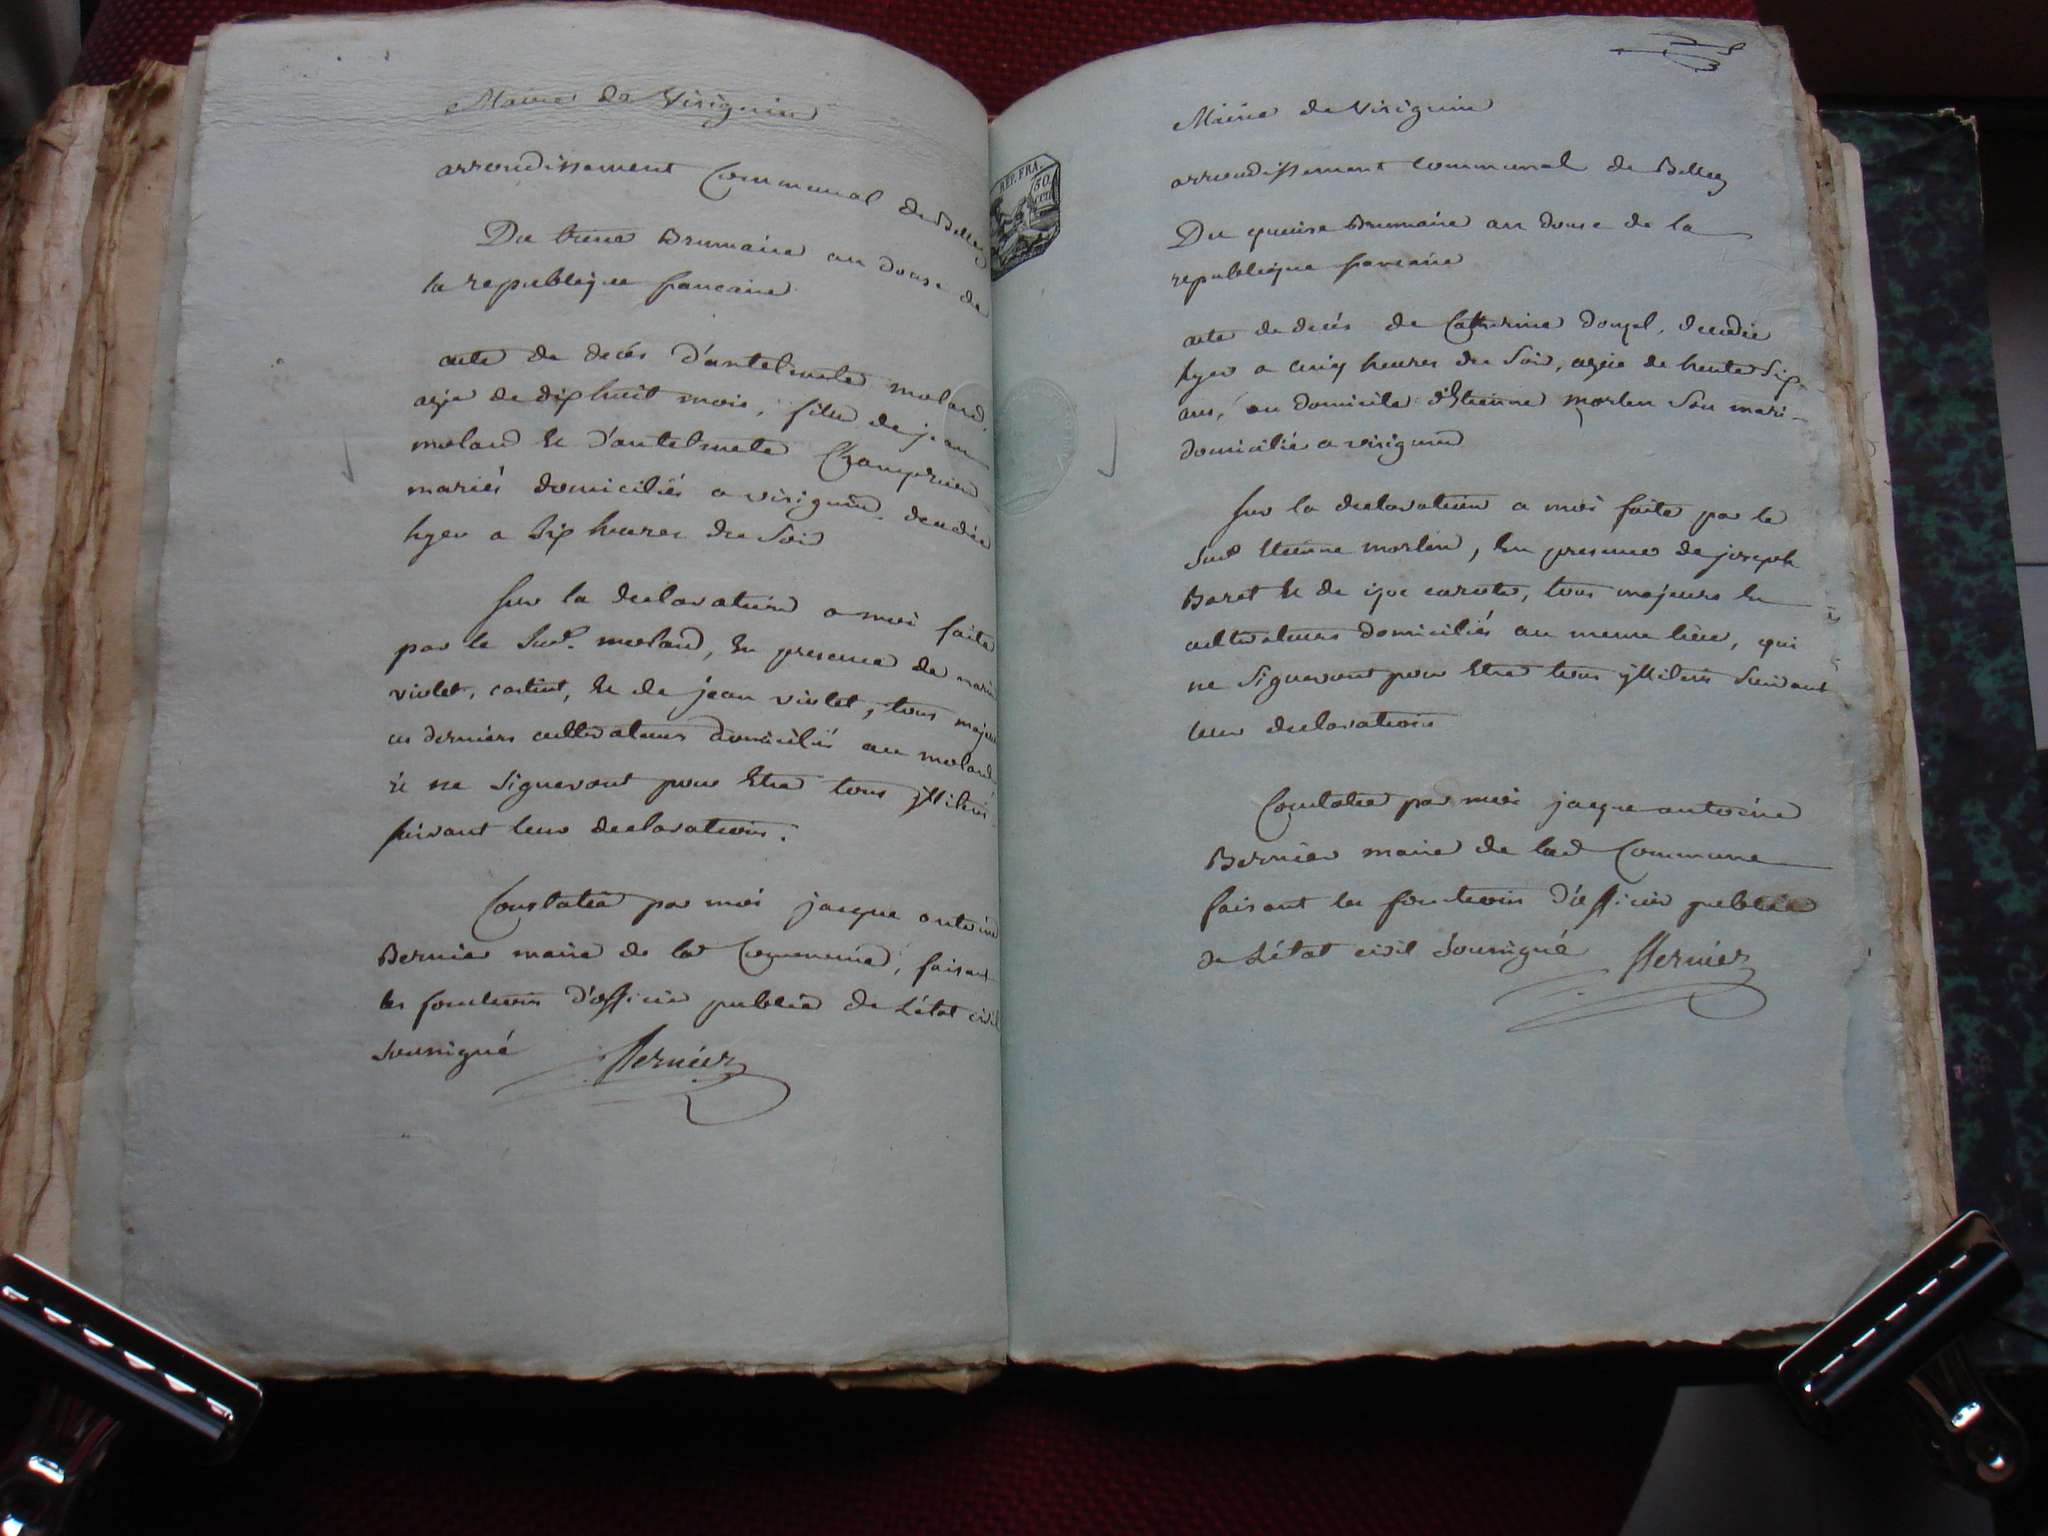 Mairie de Virignin
arrondissement Communal de Belley
Du treise Brumaire an douse de
la republique francaise
acte de decés d'antelmete molard,
agée de diphuit mois, fille de jean
molard et d'antelmete
mariés domiciliés a virignin, deudée
hyer a sip heures du soir
sur la declaration a moi faite
par le sud. molard, en presence de
violet, et de jean violet, tous majeurs
ces derniers cultivateurs domiciliés au molard
et ne signeront pour etre tous yllitérés
suivant leur declaration.
Constatée par moi jacque antoine
Bernier maire de lad Commune, faisant
les fonctions d'officier publice de l'état civil
soussigné Bernier
Mairie de Virignin
arrondissement communal de Belley
Du quinse Brumaire an douse de la
republique francaise
acte de decés de Catherine douzel, deudée
hyer a cinq heures du soir, agée de trente sip
ans, au domicile d'Etienne morlin son mari
domicilié a virignin
sur la declaration a moi faite par le
sud Etienne morlin, en presence de joseph
Baret et de tous majeurs et
cultivateurs domiciliés au meme lieu, qui
ne signeront pour etre tous yllitérés suivant
leur declaration
Constatée par moi jacque antoine
Bernier maire de lad Commune
faisant les fonctions d'officier publice
de l'état civil soussigné Bernier
REP. FRA.
50